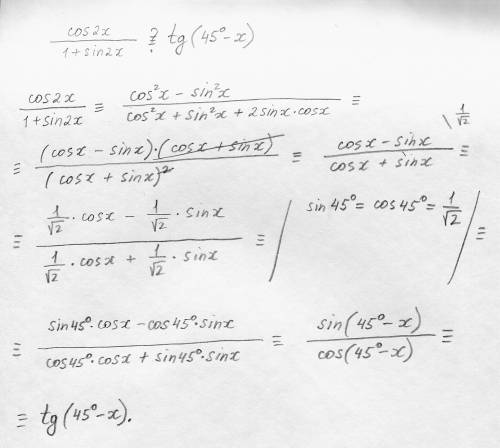 cos2x / (1 + sin2x) ≟ tg(45° - x)
cos2x / (1 + sin2x) ≡ (cos²x - sin²x) / (cos²x + sin²x + 2sinx·cosx) ≡
≡ (cosx - sinx)·(cosx + sinx) / (cosx + sinx)² ≡ (cosx - sinx) / (cosx + sinx) ≡ \ 1/√2
≡ (1/√2 · cosx - 1/√2 · sinx) / (1/√2 · cosx + 1/√2 · sinx) ≡ / sin45° = cos45° = 1/√2 / ≡
≡ (sin45°·cosx - cos45°·sinx) / (cos45°·cosx + sin45°·sinx) ≡ sin(45° - x) / cos(45° - x) ≡
≡ tg(45° - x).